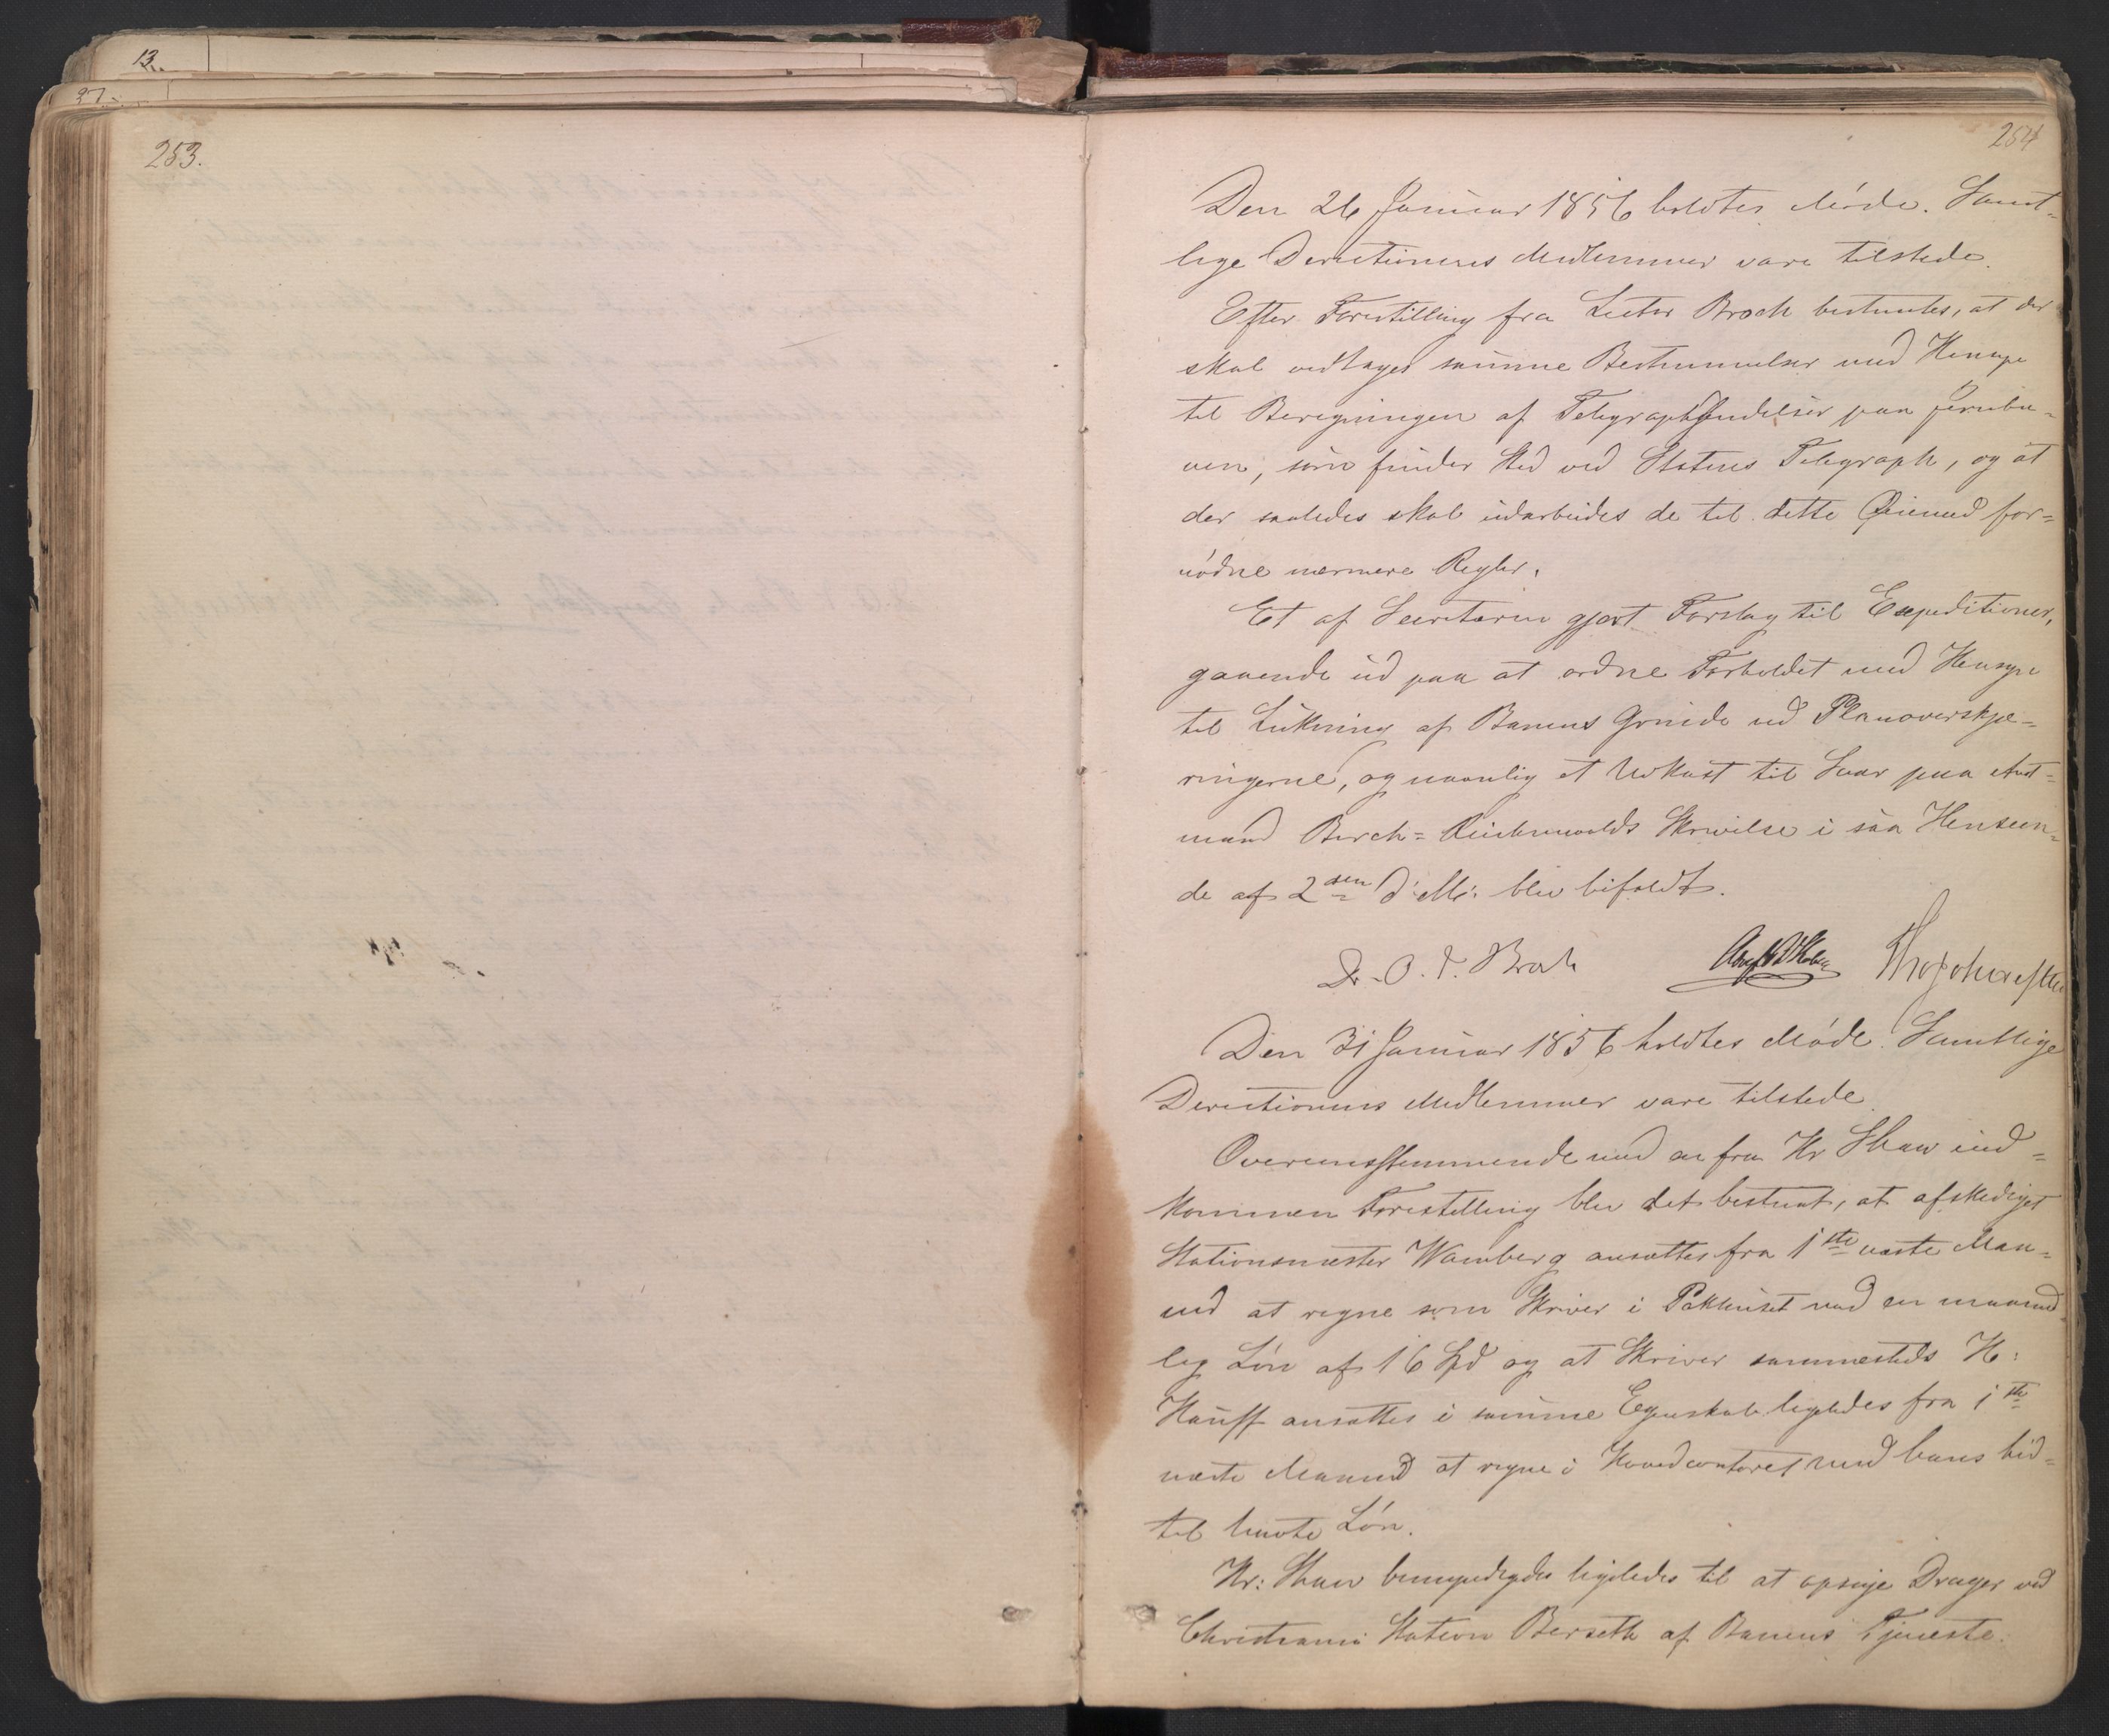 13.
27.
253.
254
Den 26 Januar 1856 holdtes Møde. Samt-
lige Directionens Medlemmer vare tilstede.
Efter Forestilling fra Lector Broch bestemtes, at der
skal vedtages samme Bestemmelser med Hensyn
til Beregningen af Telegraphsendelser paa Jernba-
nen, som finder Sted ved Statens Telegraph, og at
der saaledes skal udarbeides de til dette Øiemed for=
nødne nærmere Regler.
Et af Secretæren gjort Forslag til Expeditioner,
gaaende ud paa at ordne Forholdet med Hensyn
til Lukning af Banens Grinde ved Planoverskjæ-
ringerne, og navnlig et Udkast til Svar paa Amt-
mand Birch=Reichenwalds Skrivelse i saa Henseen-
de af 2den d: M: blev bifaldt.
Dr. O. J. Broch
Den 31 Januar 1856 holdtes Møde. Samtlige
Directionens Medlemmer vare tilstede
Overensstemmende med en fra Hr Shaw ind=
kommen Forestilling blev det bestemt, at afskediget
Stationsmester Wamberg ansattes fra 1ste næste Maa-
ned at regne som Skriver i Pakhuset med en maaned-
lig Løn af 16 Spd og at Skriver sammesteds H:
Hauff ansattes i samme Egenskab ligeledes fra 1ste
næste Maaned at regne i Hovedcontoret med hans hid=
til havte Løn.
Hr: Shaw bemyndigedes ligeledes til at opsige Drager ved
Christiania Station Berseth af Banens Tjeneste.